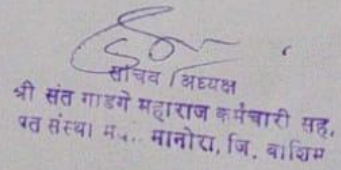 सचिव / अध्यक्ष
श्री संत गाडगे महाराज कर्मचारी सह.
पत संस्था म... मानोरा, जि. वाशिम